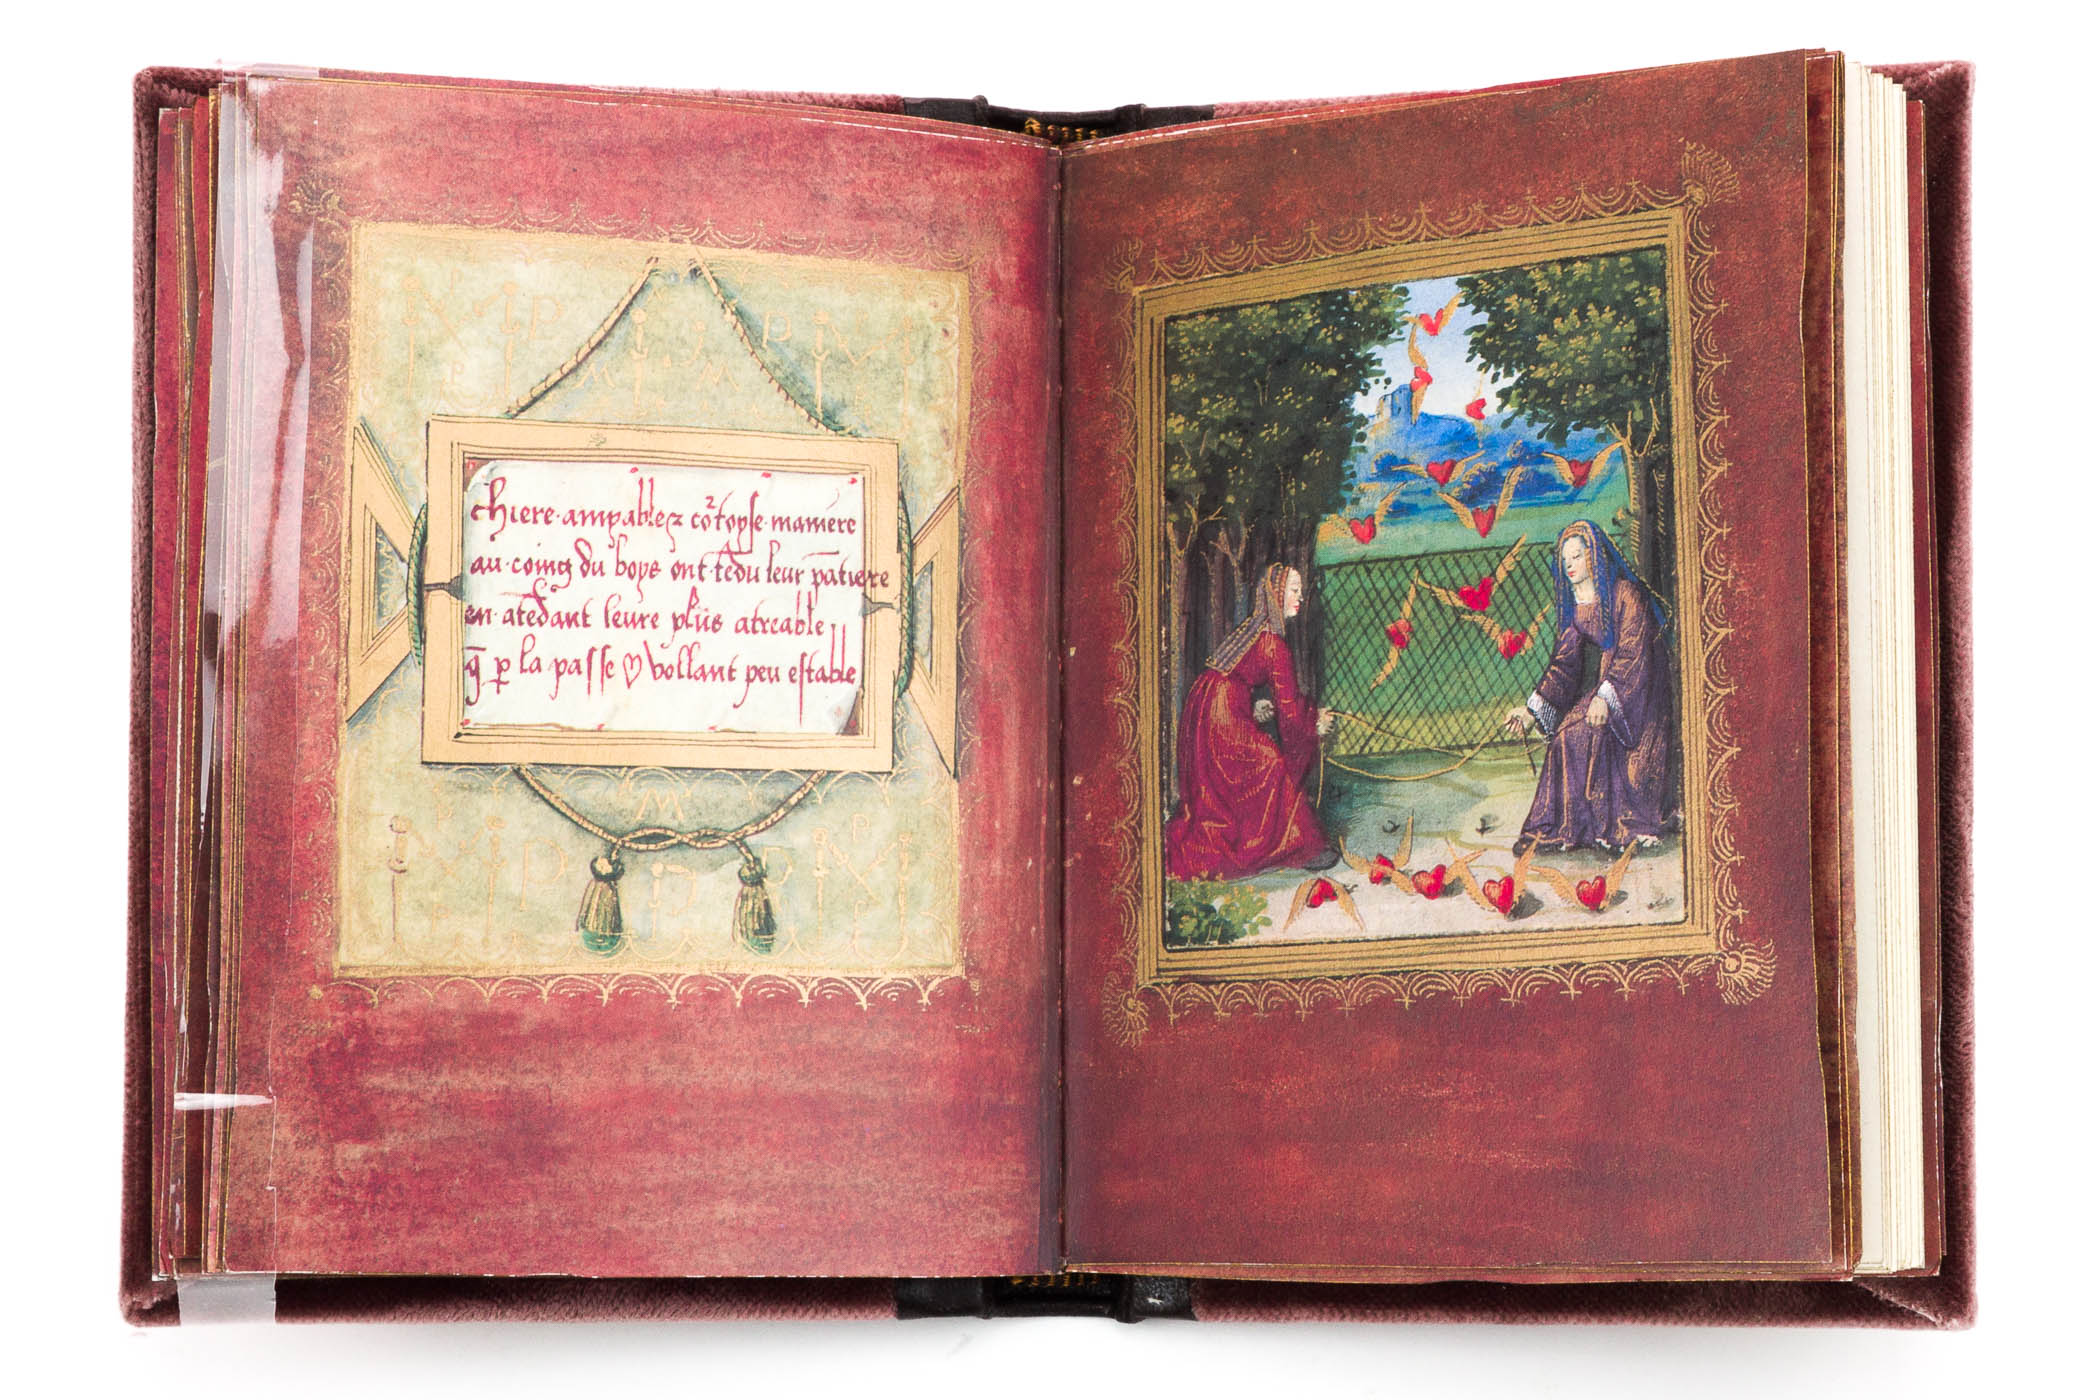 chiere·amyable z co᷑toyse·maniere
au·coing du boys ont·tēdu leur pātiere
en·atēdant leure plus atreable
q̄ p̄ la passe ♡ vollant peu estable